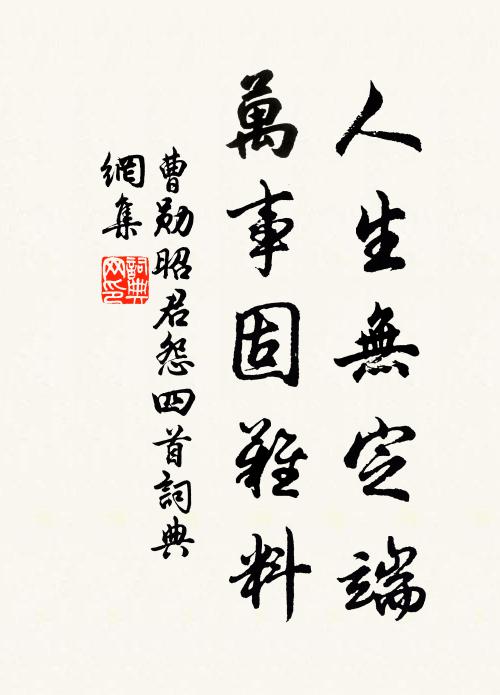 人生無定端
萬事固難料
曹勛昭君怨四首詞典
網集
詞典網印